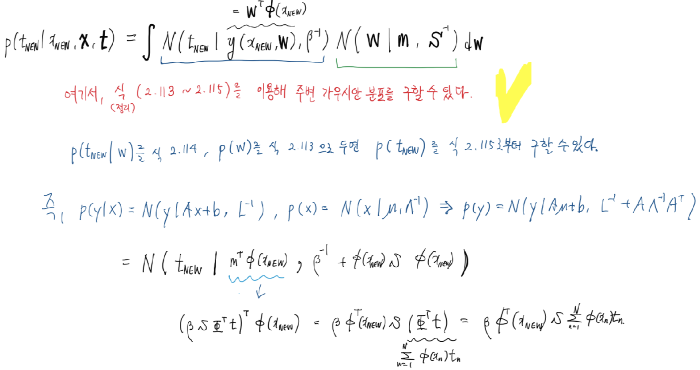 = Wᵀϕ(x_NEW)
p(t_NEW | x_NEW, 𝐱, 𝐭) = ∫ N(t_NEW | y(x_NEW, W), β⁻¹) N(W | m, S⁻¹) dW
여기서, 식 (2.113 ~ 2.115)를 이용해 주변 가우시안 분포를 구할 수 있다.
(정리)
p(t_NEW | w)를 식 2.114, p(w)를 식 2.113 으로 두면 p(t_NEW)를 식 2.115로부터 구할 수 있다.
즉, p(y|x) = N(y | Ax+b, L⁻¹), p(x) = N(x | μ, Λ⁻¹) ⇒ p(y) = N(y | Aμ+b, L⁻¹ + AΛ⁻¹Aᵀ)
= N( t_NEW | mᵀϕ(x_NEW), β⁻¹ + ϕ(x_NEW) S ϕ(x_NEW) )
(β S Φᵀt)ᵀ ϕ(x_NEW) = β ϕᵀ(x_NEW) S (Φᵀt) = β ϕᵀ(x_NEW) S Σ_{n=1}^{N} ϕ(x_n)t_n
Σ_{n=1}^{N} ϕ(x_n)t_n